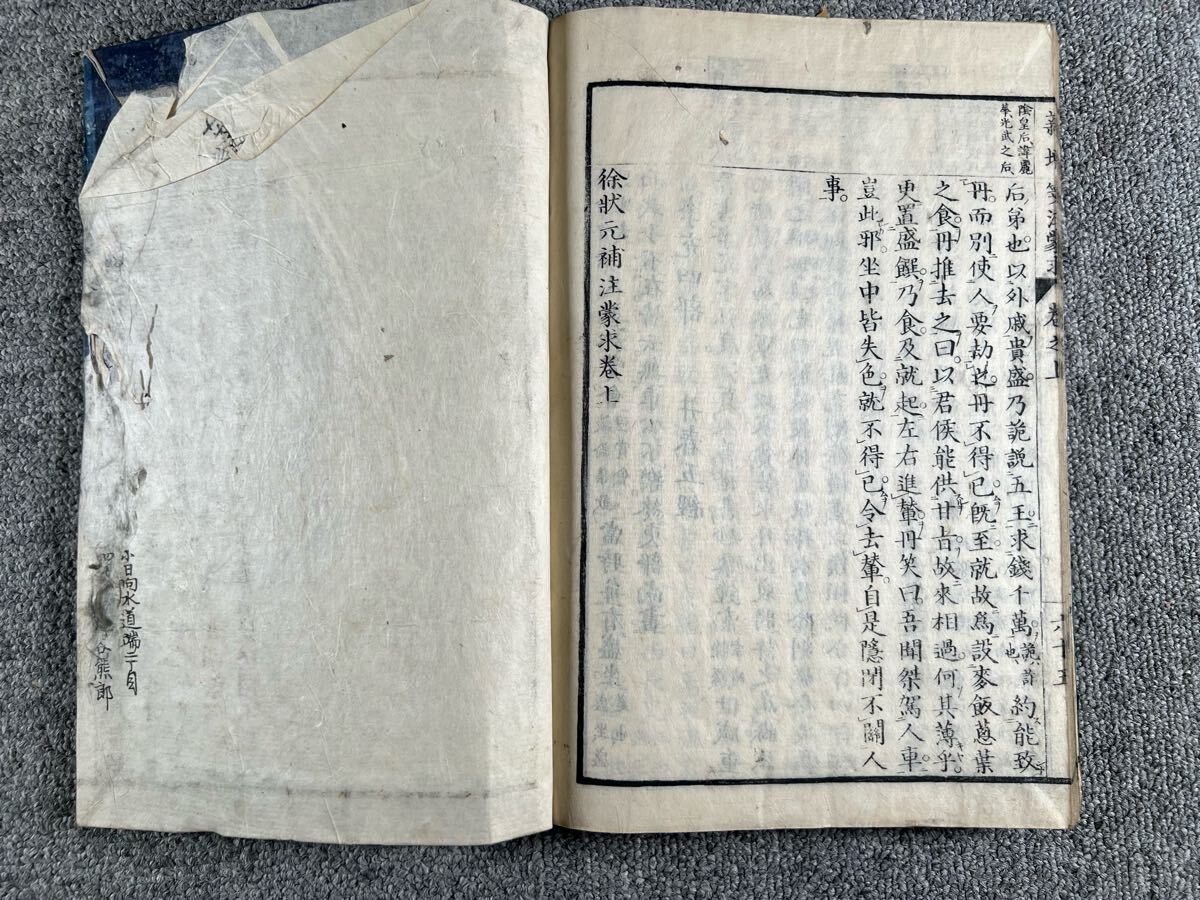 陰皇后諱麗
華光武之后
后弟也以外戚貴盛乃詭説五王求錢千萬詭音也約能致
丹而別使人要劫之丹不得已既至就故爲設麥飯蔥葉
之食丹推去之曰以君侯能供甘旨故來相過何其薄乎
更置盛饌乃食及就起左右進輦丹笑曰吾聞桀駕人車
豈此邪坐中皆失色就不得已令去輦自是隱閉不關人
事
徐狀元補注蒙求卷上
六十五
小日向水道端二丁目
四 谷熊郎